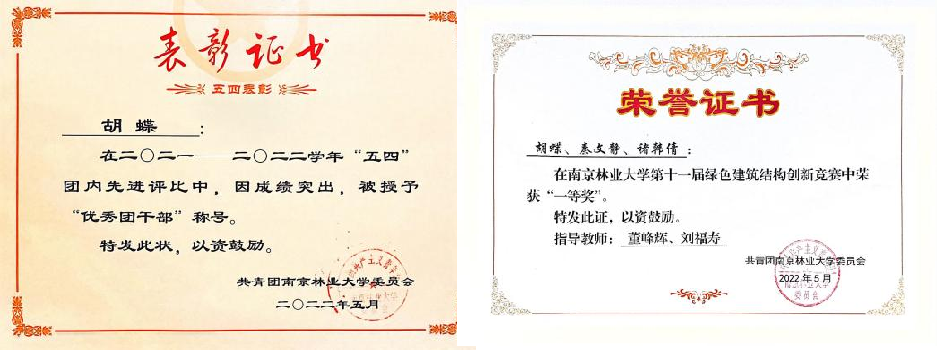 表彰证书
五四表彰
胡蝶：
在二〇二一——二〇二二学年“五四”
团内先进评比中，因成绩突出，被授予
“优秀团干部”称号。
特发此状，以资鼓励。
共青团南京林业大学委员会
二〇二二年五月
荣誉证书
胡蝶、秦文静、诸韩倩：
在南京林业大学第十一届绿色建筑结构创新竞赛中荣
获“一等奖”。
特发此证，以资鼓励。
指导教师：董峰辉、刘福寿
共青团南京林业大学委员会
2022年5月